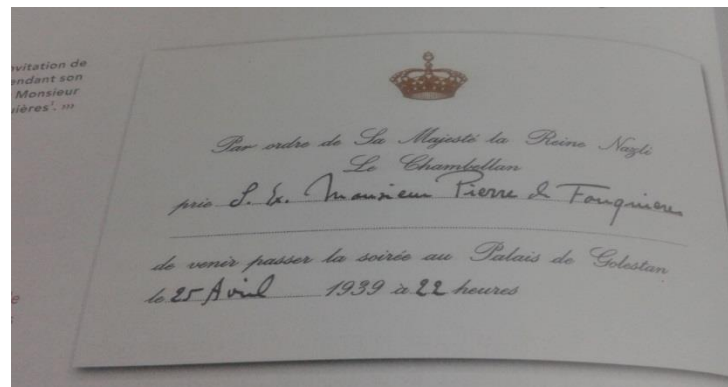 nvitation de
endant son
Monsieur
uières¹. »»
Par ordre de Sa Majesté la Reine Nazli
Le Chambellan
prie S. Ex. Monsieur Pierre de Fouquières
de venir passer la soirée au Palais de Golestan
le 25 Avril 1939 à 22 heures